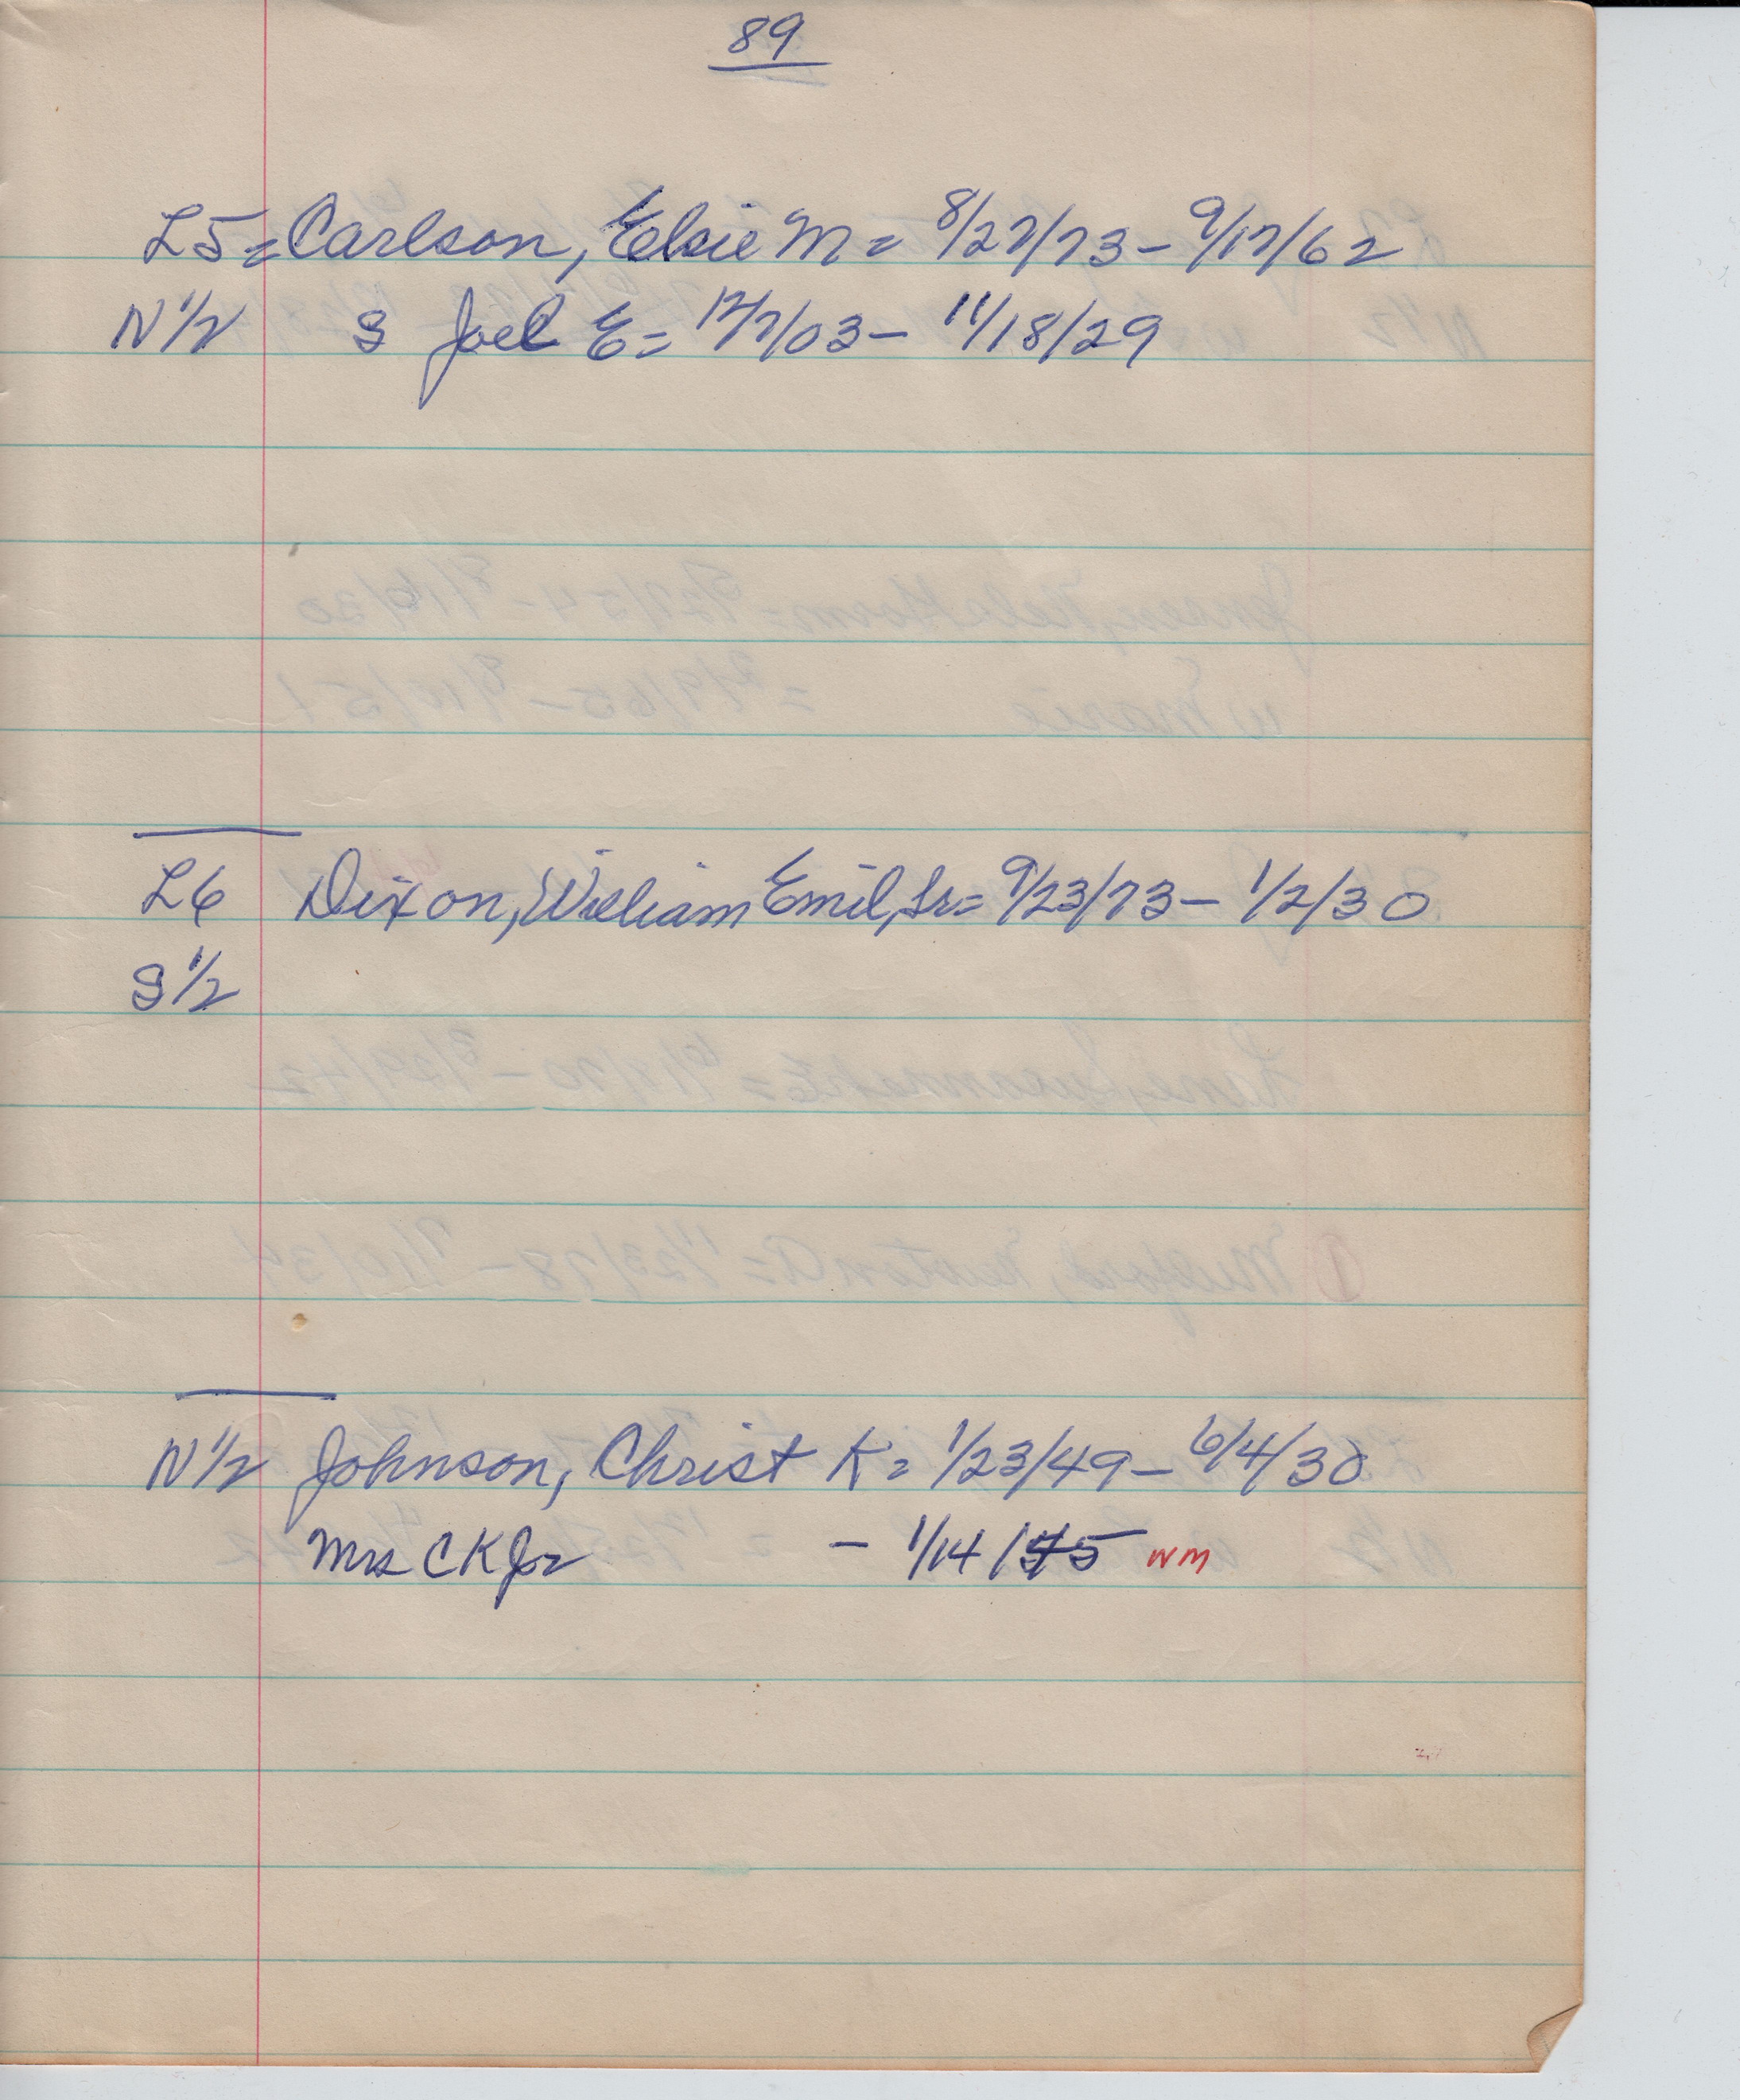 89
L5 = Carlson, Elsie M = 8/27/73 - 9/17/62
N 1/2 S Joel E = 12/7/03 - 11/18/29
L6 Dixon, William Emil, Sr = 9/23/73 - 1/2/30
S 1/2
N 1/2 Johnson, Christ K = 1/23/49 - 6/4/30
Mrs C K Jr - 1/14/ WM